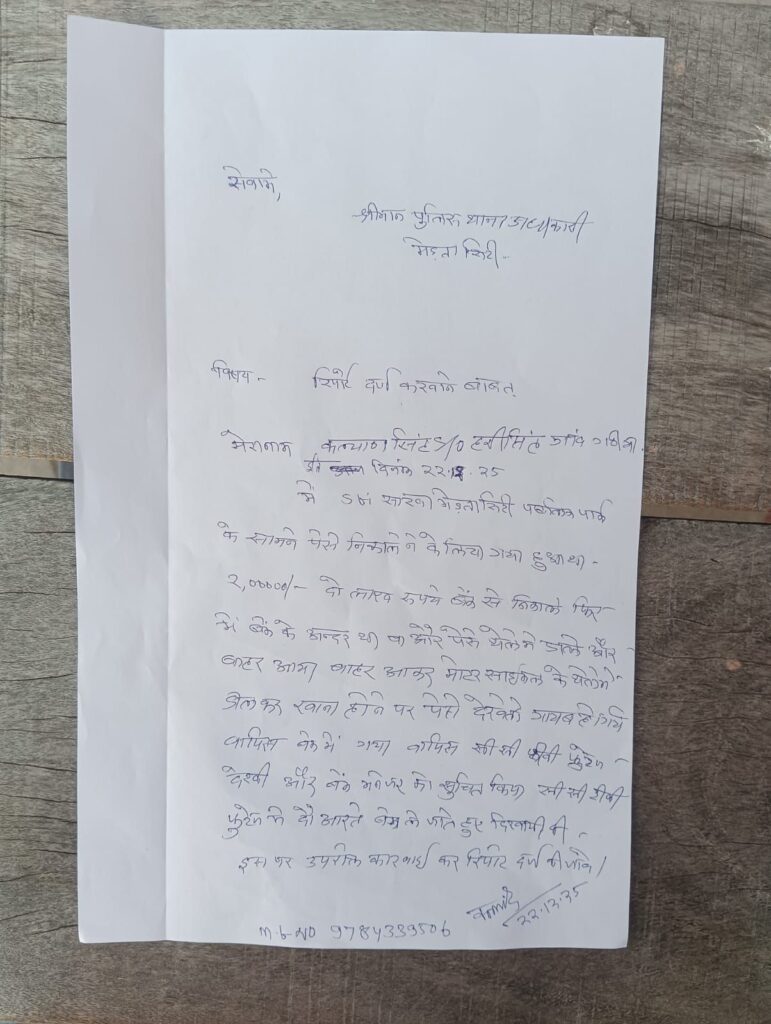 सेवामे,
श्रीमान पुलिस थाना अधिकारी
मेड़ता सिटी.
विषय - रिपोर्ट दर्ज करवाने बाबत्
मेरा नाम कल्याण सिंह S/o हरी सिंह गांव
दिनांक 22.12.25
मैं SBI साखा मेड़ता सिटी पब्लिक पार्क
के सामने पैसे निकालने के लिया गया हुआ था -
2,00000/- दो लाख रूपये बैंक से निकाले फिर
में बैंक के अन्दर था व और पैसे थेले में डाले और
बाहर आया बाहर आकर मोटर साईकल के थेले में
डालकर रवाना होने पर पैसे देखे तो गायब हो गये
वापिस बैंक में गया वापिस सी सी टीवी फुटेज
देखी और बैंक मनेजर को सुचित किया सी सी टीवी
फुटेज में दो औरते बेग ले जाते हुए दिखायी दी -
इस पर उपरोक्त कारवाई कर रिपोर्ट दर्ज की जावे।
22.12.25
m.b-NO 9784339506